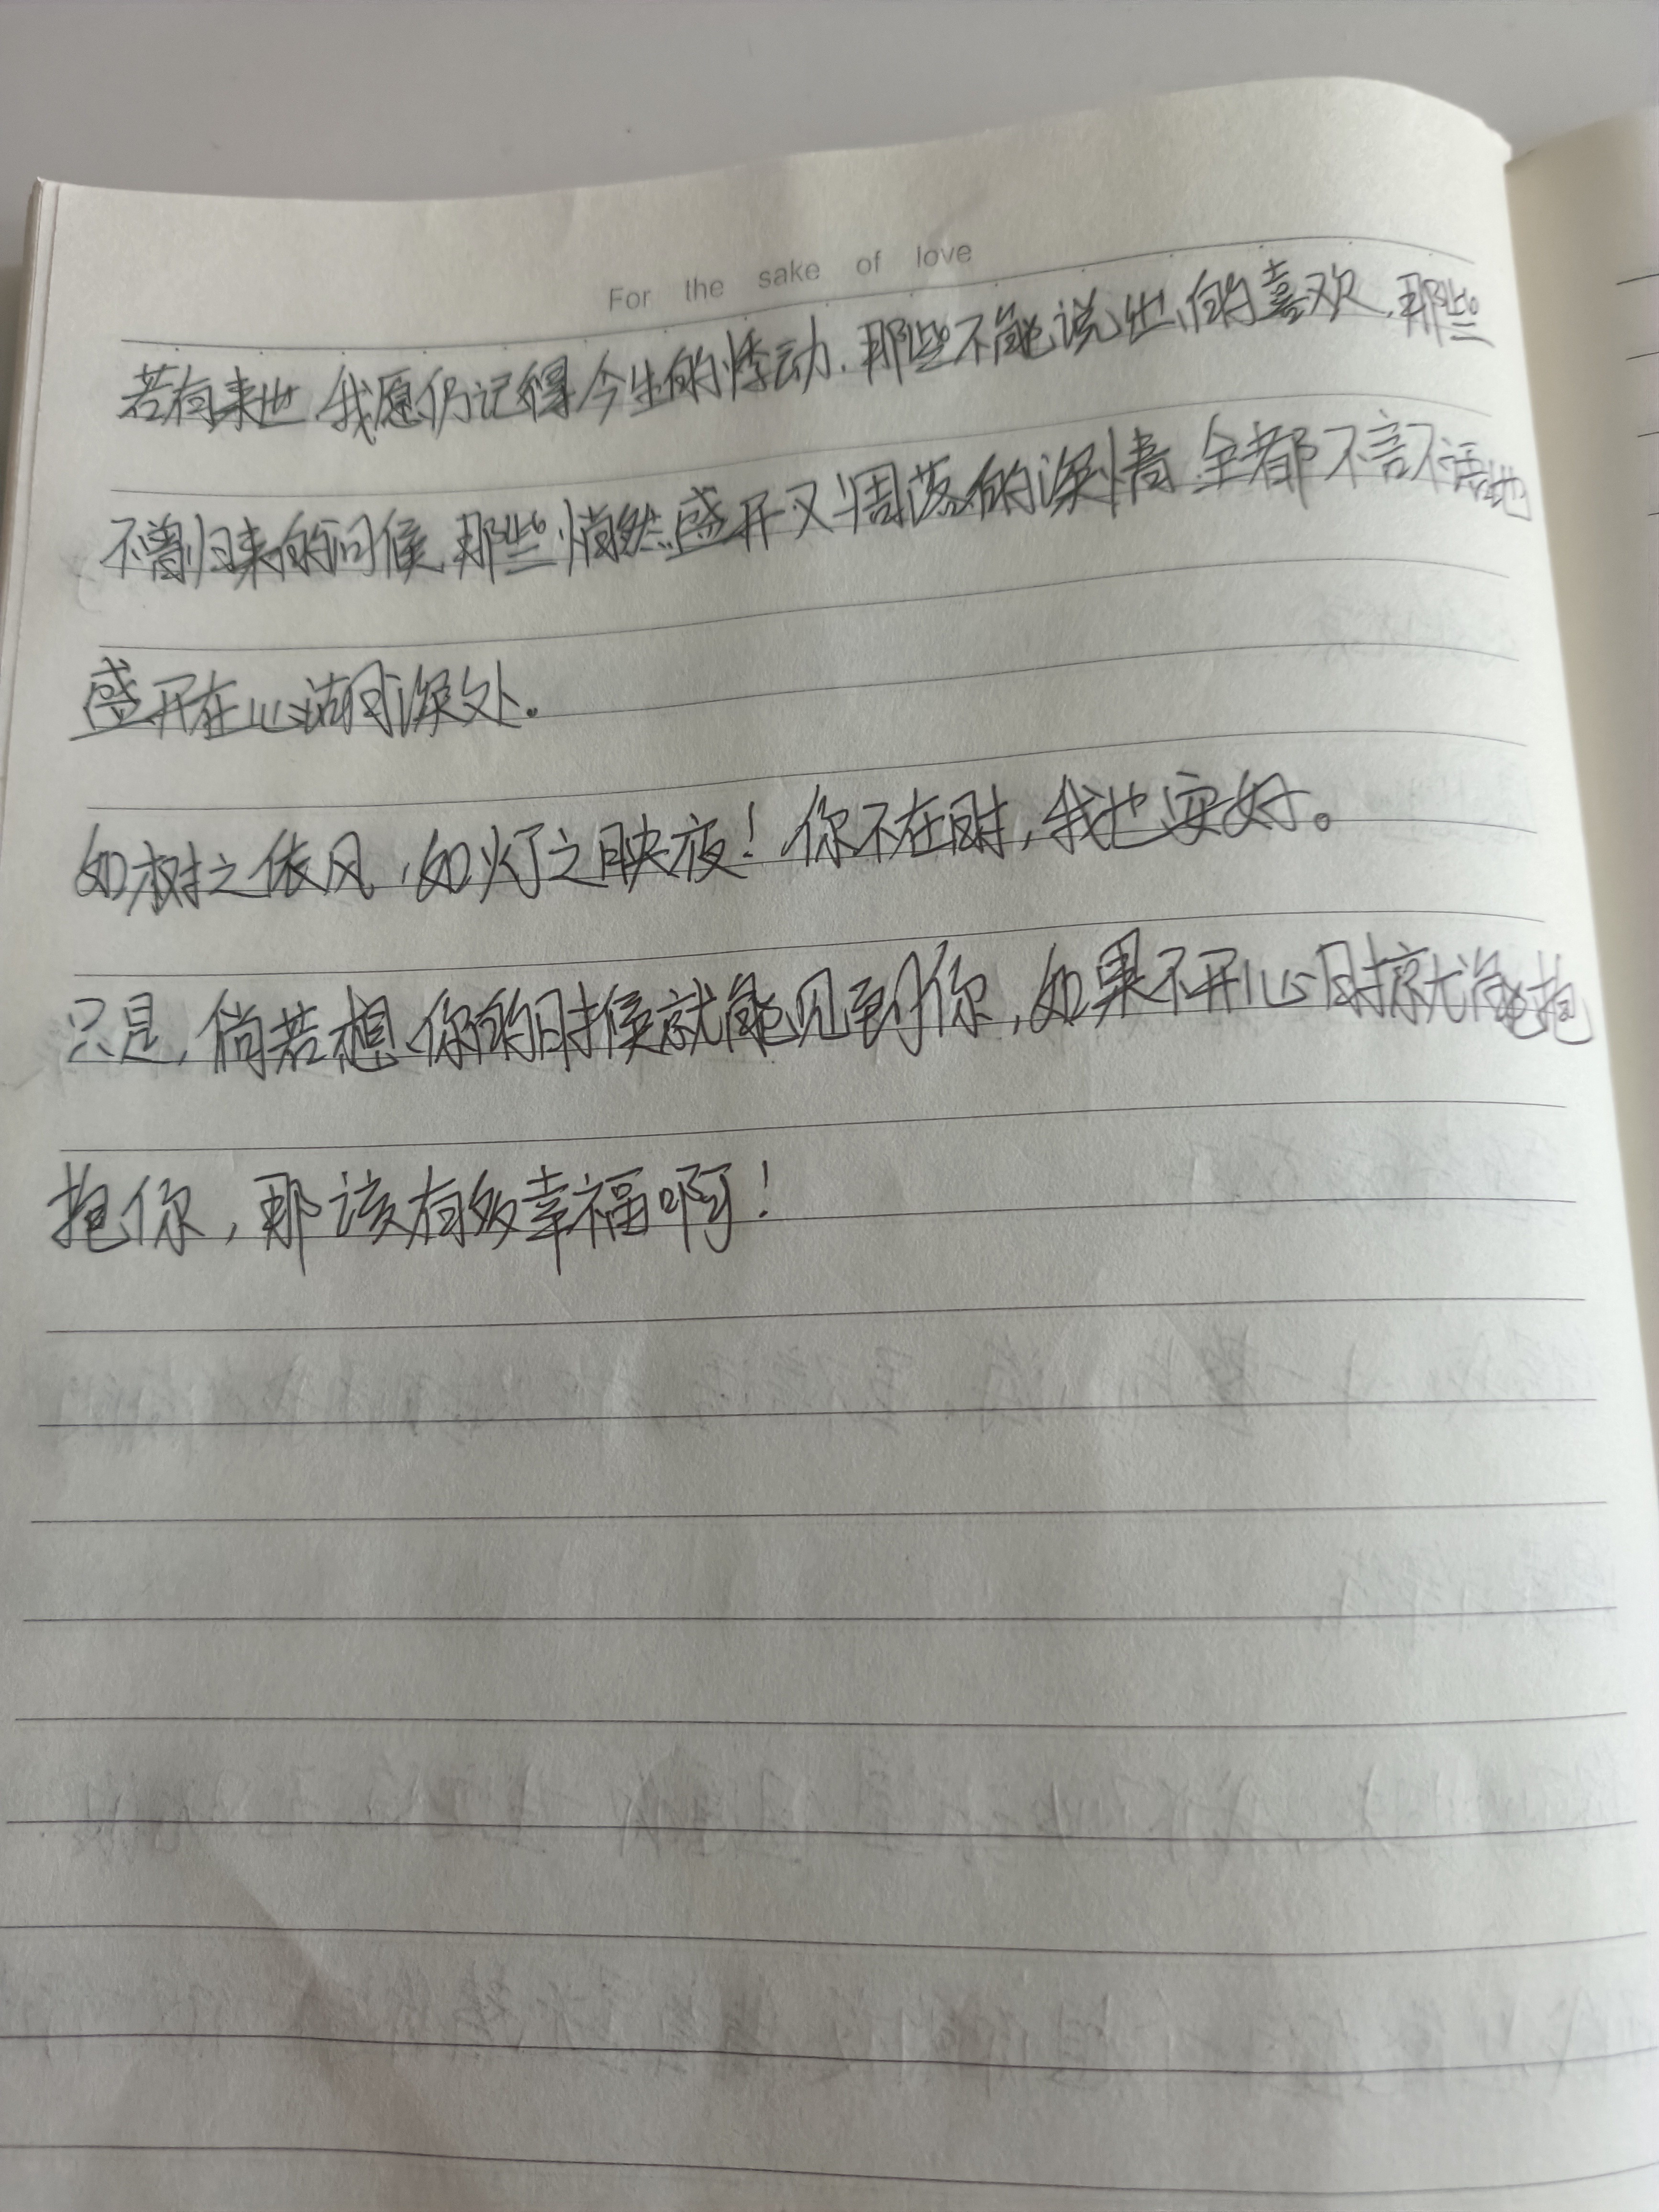 For the sake of love
若有来世,我愿仍记得今生的悸动,那些不能说出的喜欢,那些
不曾归来的问候,那些悄然盛开又凋落的深情,全都不言不语地
盛开在心湖深处。
如树之依风,如灯之映夜!你不在时,我也安好。
只是,倘若想你的时候就能见到你,如果不开心时就能抱
抱你,那该有多幸福啊!